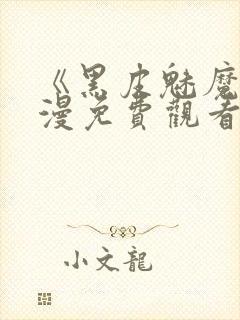 《黑皮魅魔
漫免費觀看
小文龍